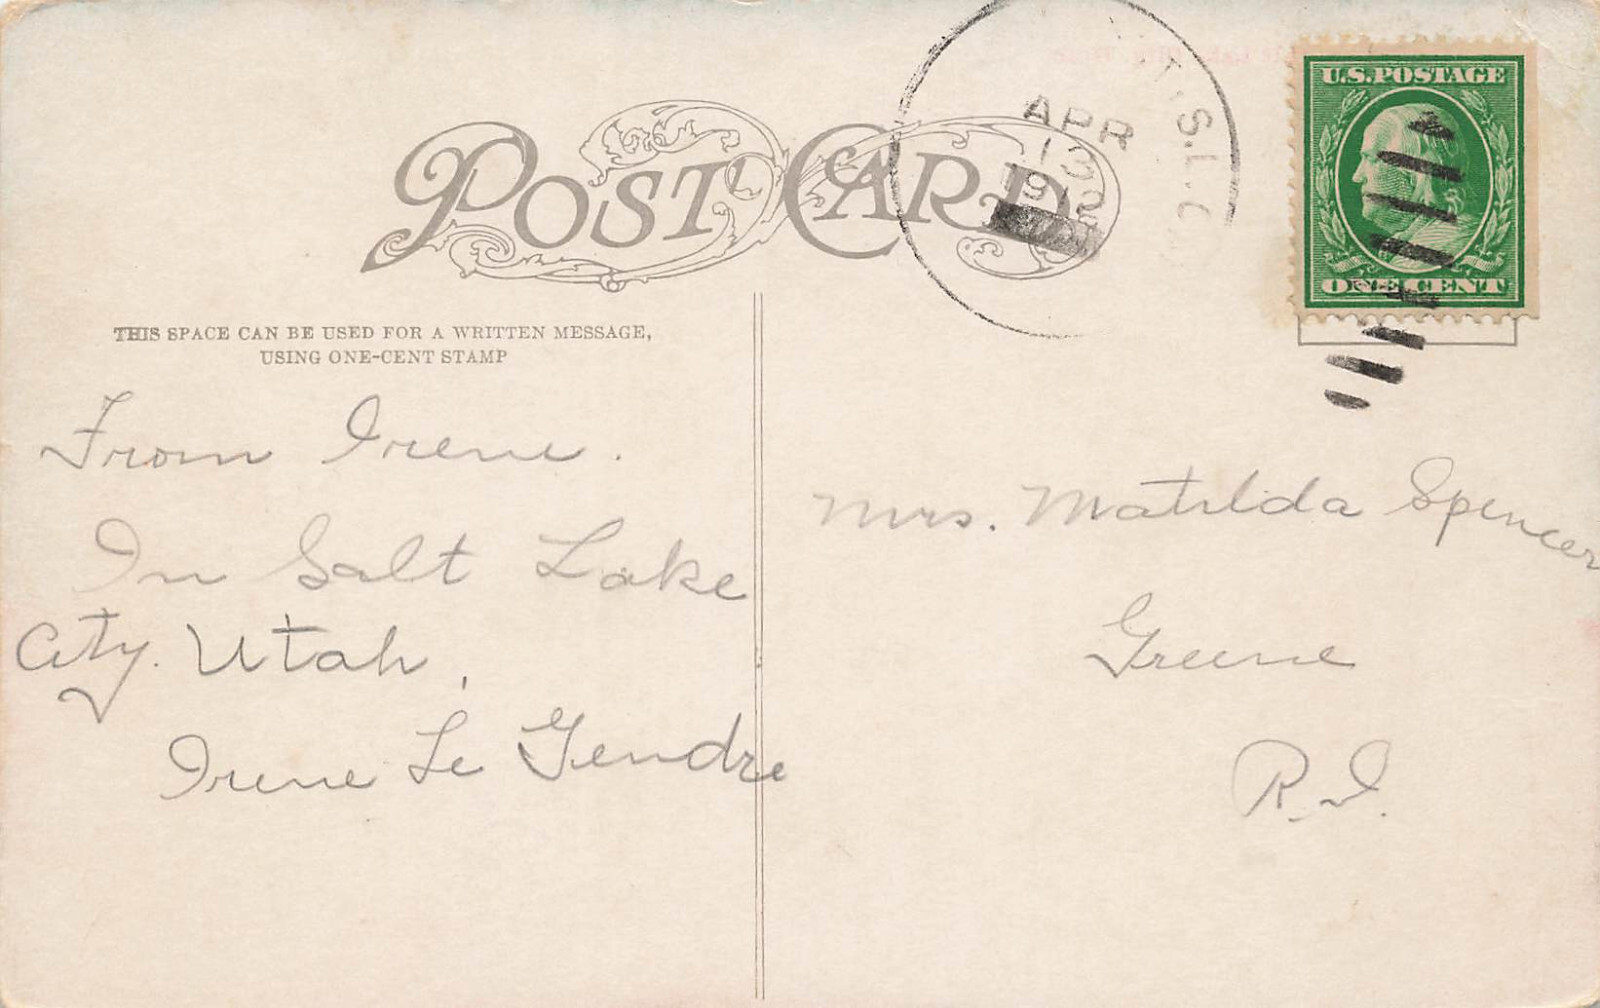 POST CARD
THIS SPACE CAN BE USED FOR A WRITTEN MESSAGE,
USING ONE-CENT STAMP
From Irene.
In Salt Lake
City. Utah,
Irene Le Gendre
APR
13
U.S. POSTAGE
ONE CENT
Mrs. Matilda Spencer
Greene
R.I.